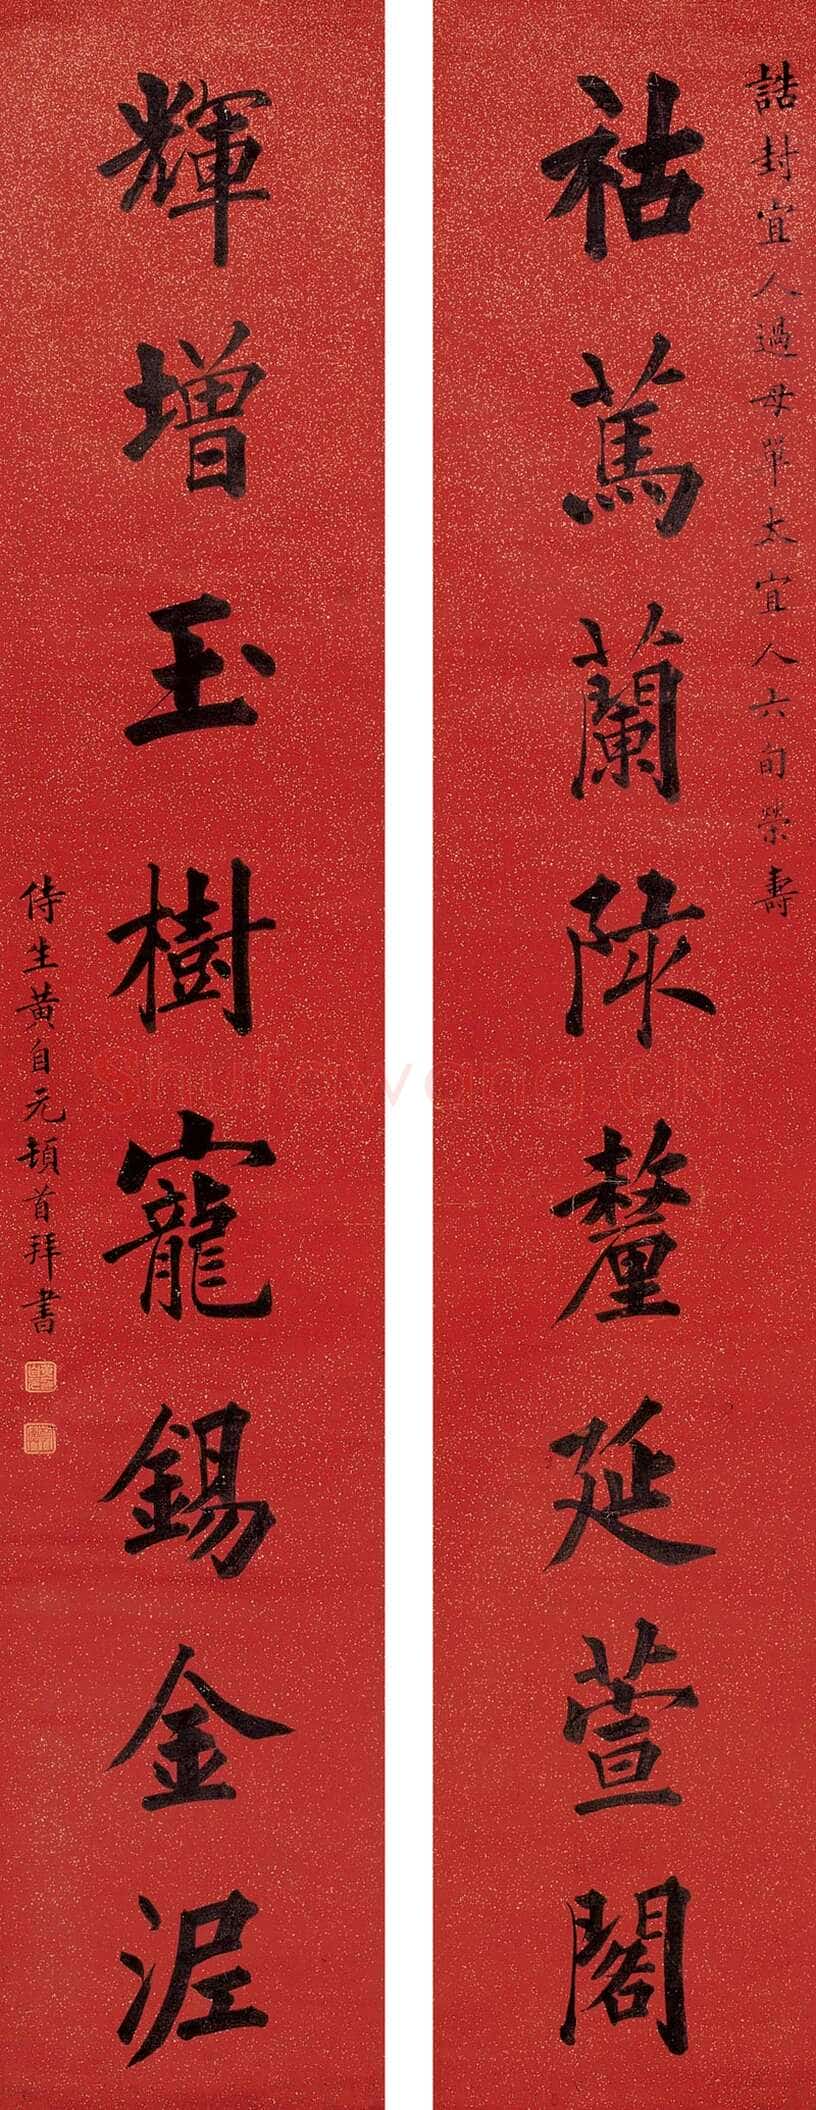 誥封宜人過母單太宜人六旬榮壽
祜篤蘭陔釐延萱閣
輝增玉樹寵錫金泥
侍生黃自元頓首拜書
Shufawang.CN